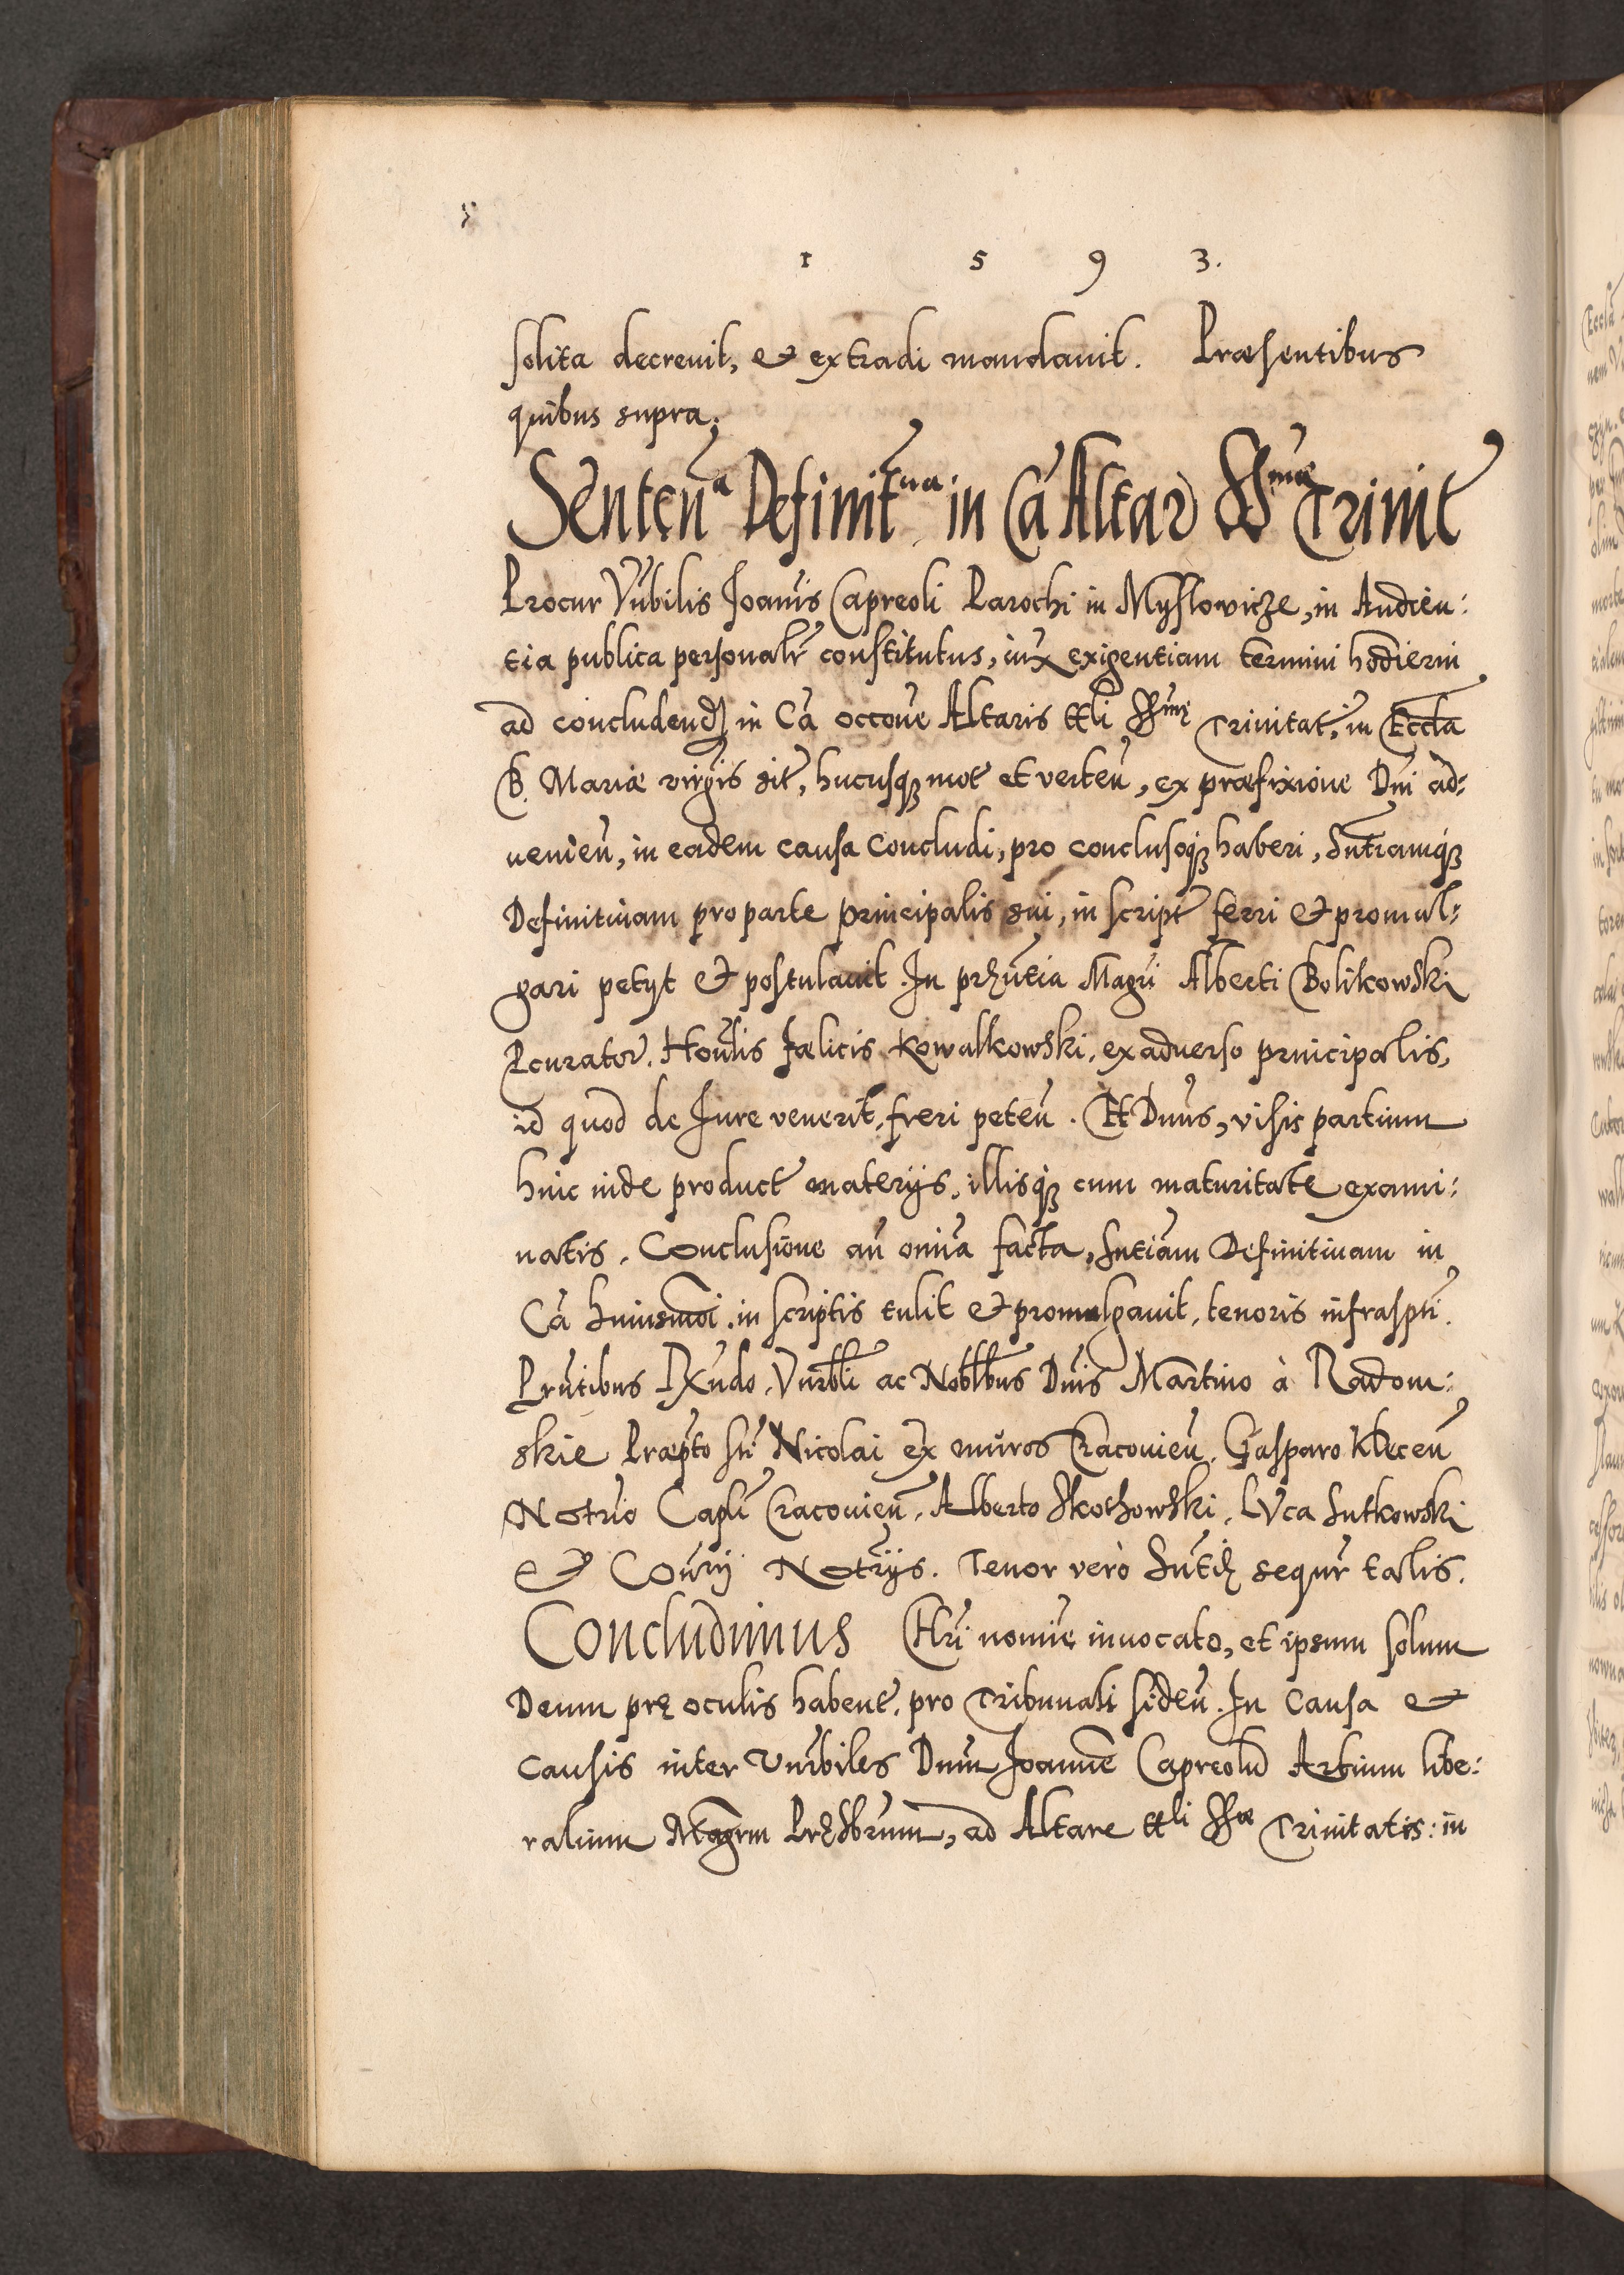 1 5 9 3.
solita decrevit, et extradi mandauit. Præsentibus
quibus supra.
Sentenª Definitᵘᵃ in Cã Altar SSᵐᵃᵉ Trinit
Procur Vnbilis Joanis Capreoli Parochi in Myslowicze, in Audien:
tia publica personalr constitutus, iux exigentiam termini hodierni
ad concludend in Cã occone Altaris ttli SSᵐᵉ Trinitat, in Eccla
B. Mariæ virgis sit, hucusq mot et verten, ex præfixione Dni ad:
uenien, in eadem causa concludi, pro conclusoq haberi, Sntiamq
Definitiuam pro parte principalis sui, in script ferri et promul:
gari petyt et postulauit. In prҙntia Magri Alberti Bolikowski
Pcurator. Honlis Fœlicis Kowalkowski, ex aduerso principalis,
id quod de Jure venerit, freri peten. Et Dnus, visis partium
hinc inde product materijs, illisq cum maturitate exami:
natis. Conclusione an omia facta, Sntiam Definitiuam in
Cã huiusmoi in scriptis tulit et promulgauit, tenoris infraspti.
Prntibus Rxndo, Vnrbli ac Noblbus Dnis Martino à Radom:
skie Præpto Sti Nicolai ex muros Cracouien, Gasparo Klecen
Notrio Capli Cracouien, Alberto Skothowski, Luca Sutkowski
et Conrij Notrijs. Tenor verò Sntię sequr talis.
Concludimus Chri nomie inuocato, et ipsum solum
Deum prę oculis habent, pro Tribunali siden. In Causa et
causis inter Vnrbiles Dnm Joannē Capreolū Artium libe:
ralium Magrm Pręsbrum, ad Altare ttli SSæ Trinitatis: in